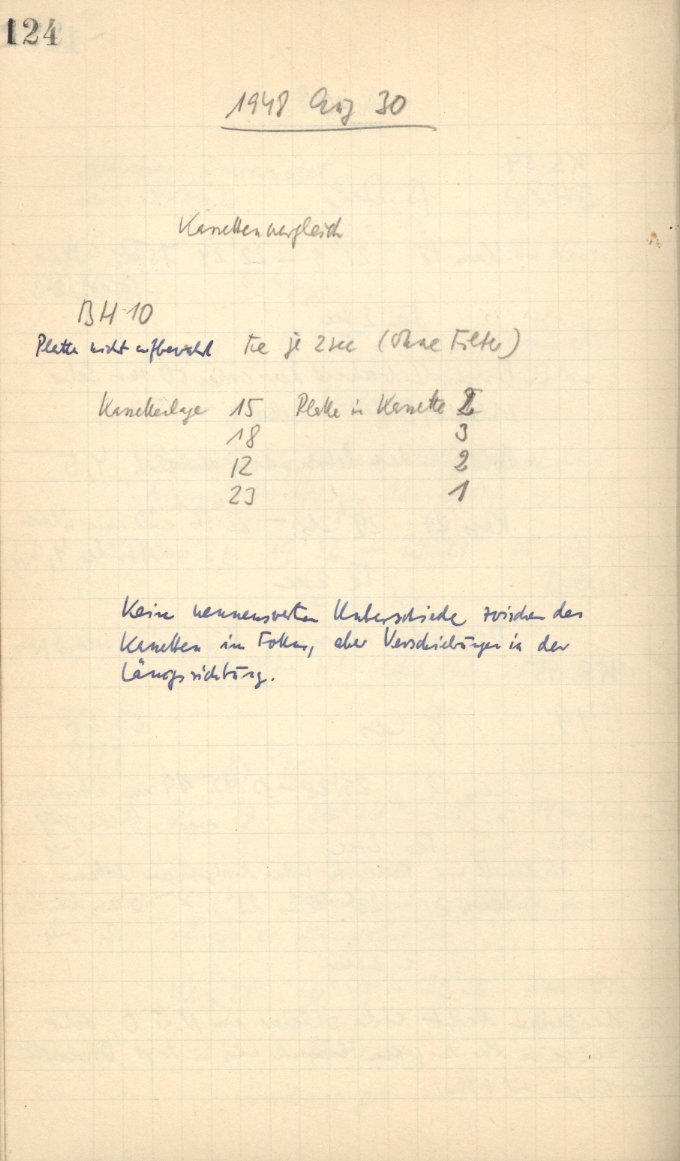 124
1948 Aug 30
Kassettenvergleich
BH 10
Platte nicht aufbewahrt Fe je 2 sec (ohne Filter)
Kassettenlage 15 Platte in Kassette 2
18 3
12 2
23 1
Keine nennenswerten Unterschiede zwischen den
Kassetten im Fokus, aber Verschiebungen in der
Längsrichtung.